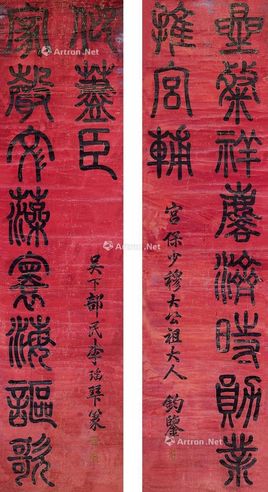 祥麐濟時勛業
推宮輔
宮保少穆大公祖大人 鈞鑒
家聲文藻寰海謳歌
藎臣
吳下部民李瑤 篆
Artron.Net
Artron.Net
Artron.Net
Artron.Net